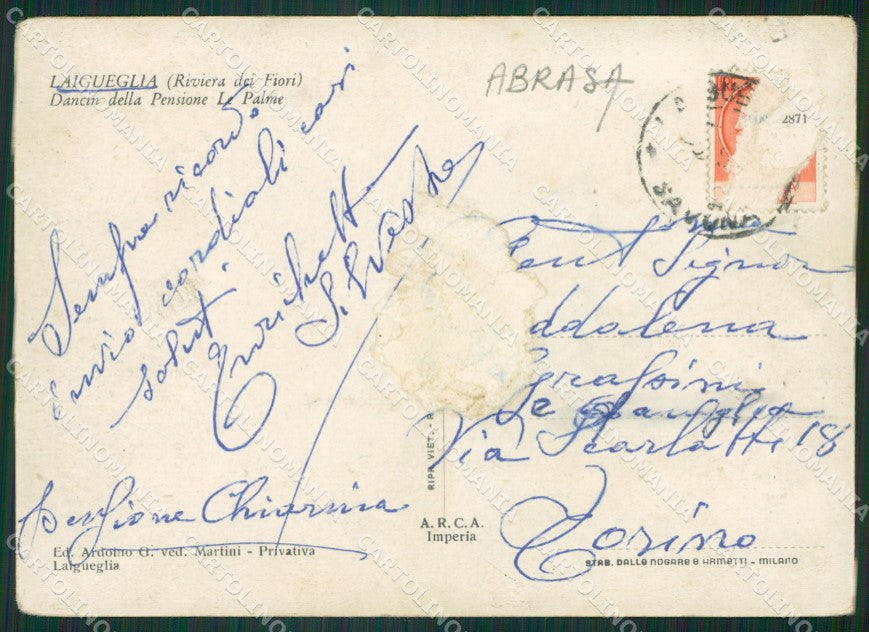 LAIGUEGLIA (Riviera dei Fiori)
Dancin della Pensione Le Palme
ABRASA
2871
SAVONA
Sempre ricordo
invio cordiali cari
saluti
Enrichetta
Silvestro
Pensione Chiarina
Ed. Ardoino G. ved. Martini - Privativa
Laigueglia
RIPR. VIET. - R
A.R.C.A.
Imperia
Gent Signor
ddalena
grassini
e famiglia
Via Scarlatti 18
Torino
STAB. DALLE NOGARE E ARMETTI - MILANO
CARTOLINOMANIA